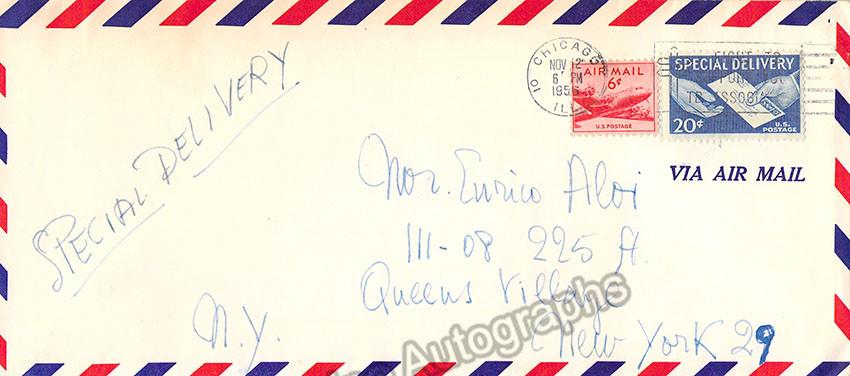 SPECIAL DELIVERY
CHICAGO
10
NOV 12
6 PM
1956
ILL
AIR MAIL
6¢
U.S. POSTAGE
SPECIAL DELIVERY
20¢
U.S. POSTAGE
FIGHT TB
TB ASSOCI
VIA AIR MAIL
Enrico Aloi
111-08 225
Queens Village
New York 29
N.Y.
Autographs